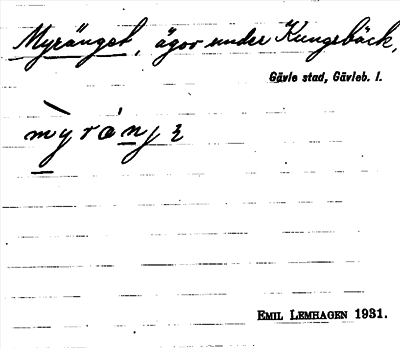 Myränget, ägor under Kungsbäck,
Gävle stad, Gävleb. l.
EMIL LEMHAGEN 1931.